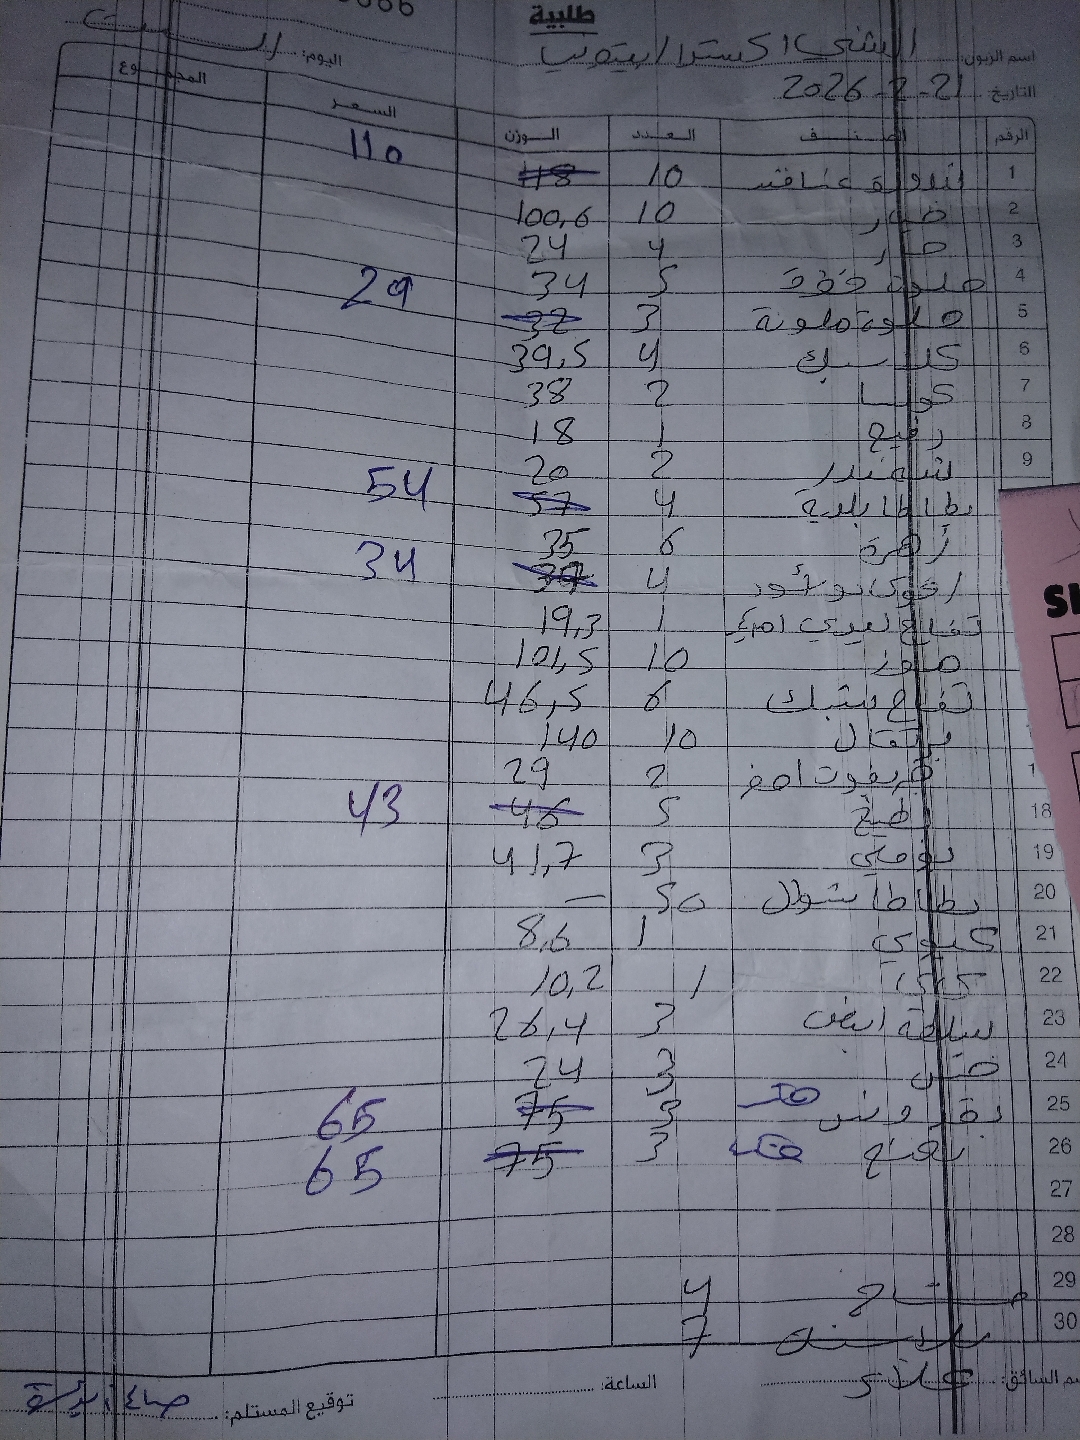 طلبية
اسم الزبون: الشني اكسترا / بيتونيا اليوم: السبت
التاريخ: 21-2-2026
الرقم الصنف العدد الوزن السعر المجموع
1 بندورة عناقيد 10 118 110
2 خيار 10 100,6
3 حار 4 24
4 حلوة 5 34
5 حلوة ملونة 3 32 29
6 كلاسيك 4 39,5
7 كوسا 2 38
8 رفيع 1 18
9 شمندر 2 20
بطاطا بلدية 4 57 54
زهرة 6 35
4 37 34
تفاح ليدي 1 19,3
موز 10 101,5
تفاح ستيك 6 46,5
برتقال 10 140
جريفوت احمر 2 29
18 بطيخ 5 46 43
19 بوملي 3 41,7
20 بطاطا شوال 50 —
21 كيوي 1 8,6
22 1 10,2
23 سلطة ابيض 3 26,4
24 خس 3 24
25 بقدونس 3 75 65
26 نعنع 3 75 65
27
28
29 مشتاح 4
30 بلاستيك 7
اسم السائق: علاء الساعة: توقيع المستلم: